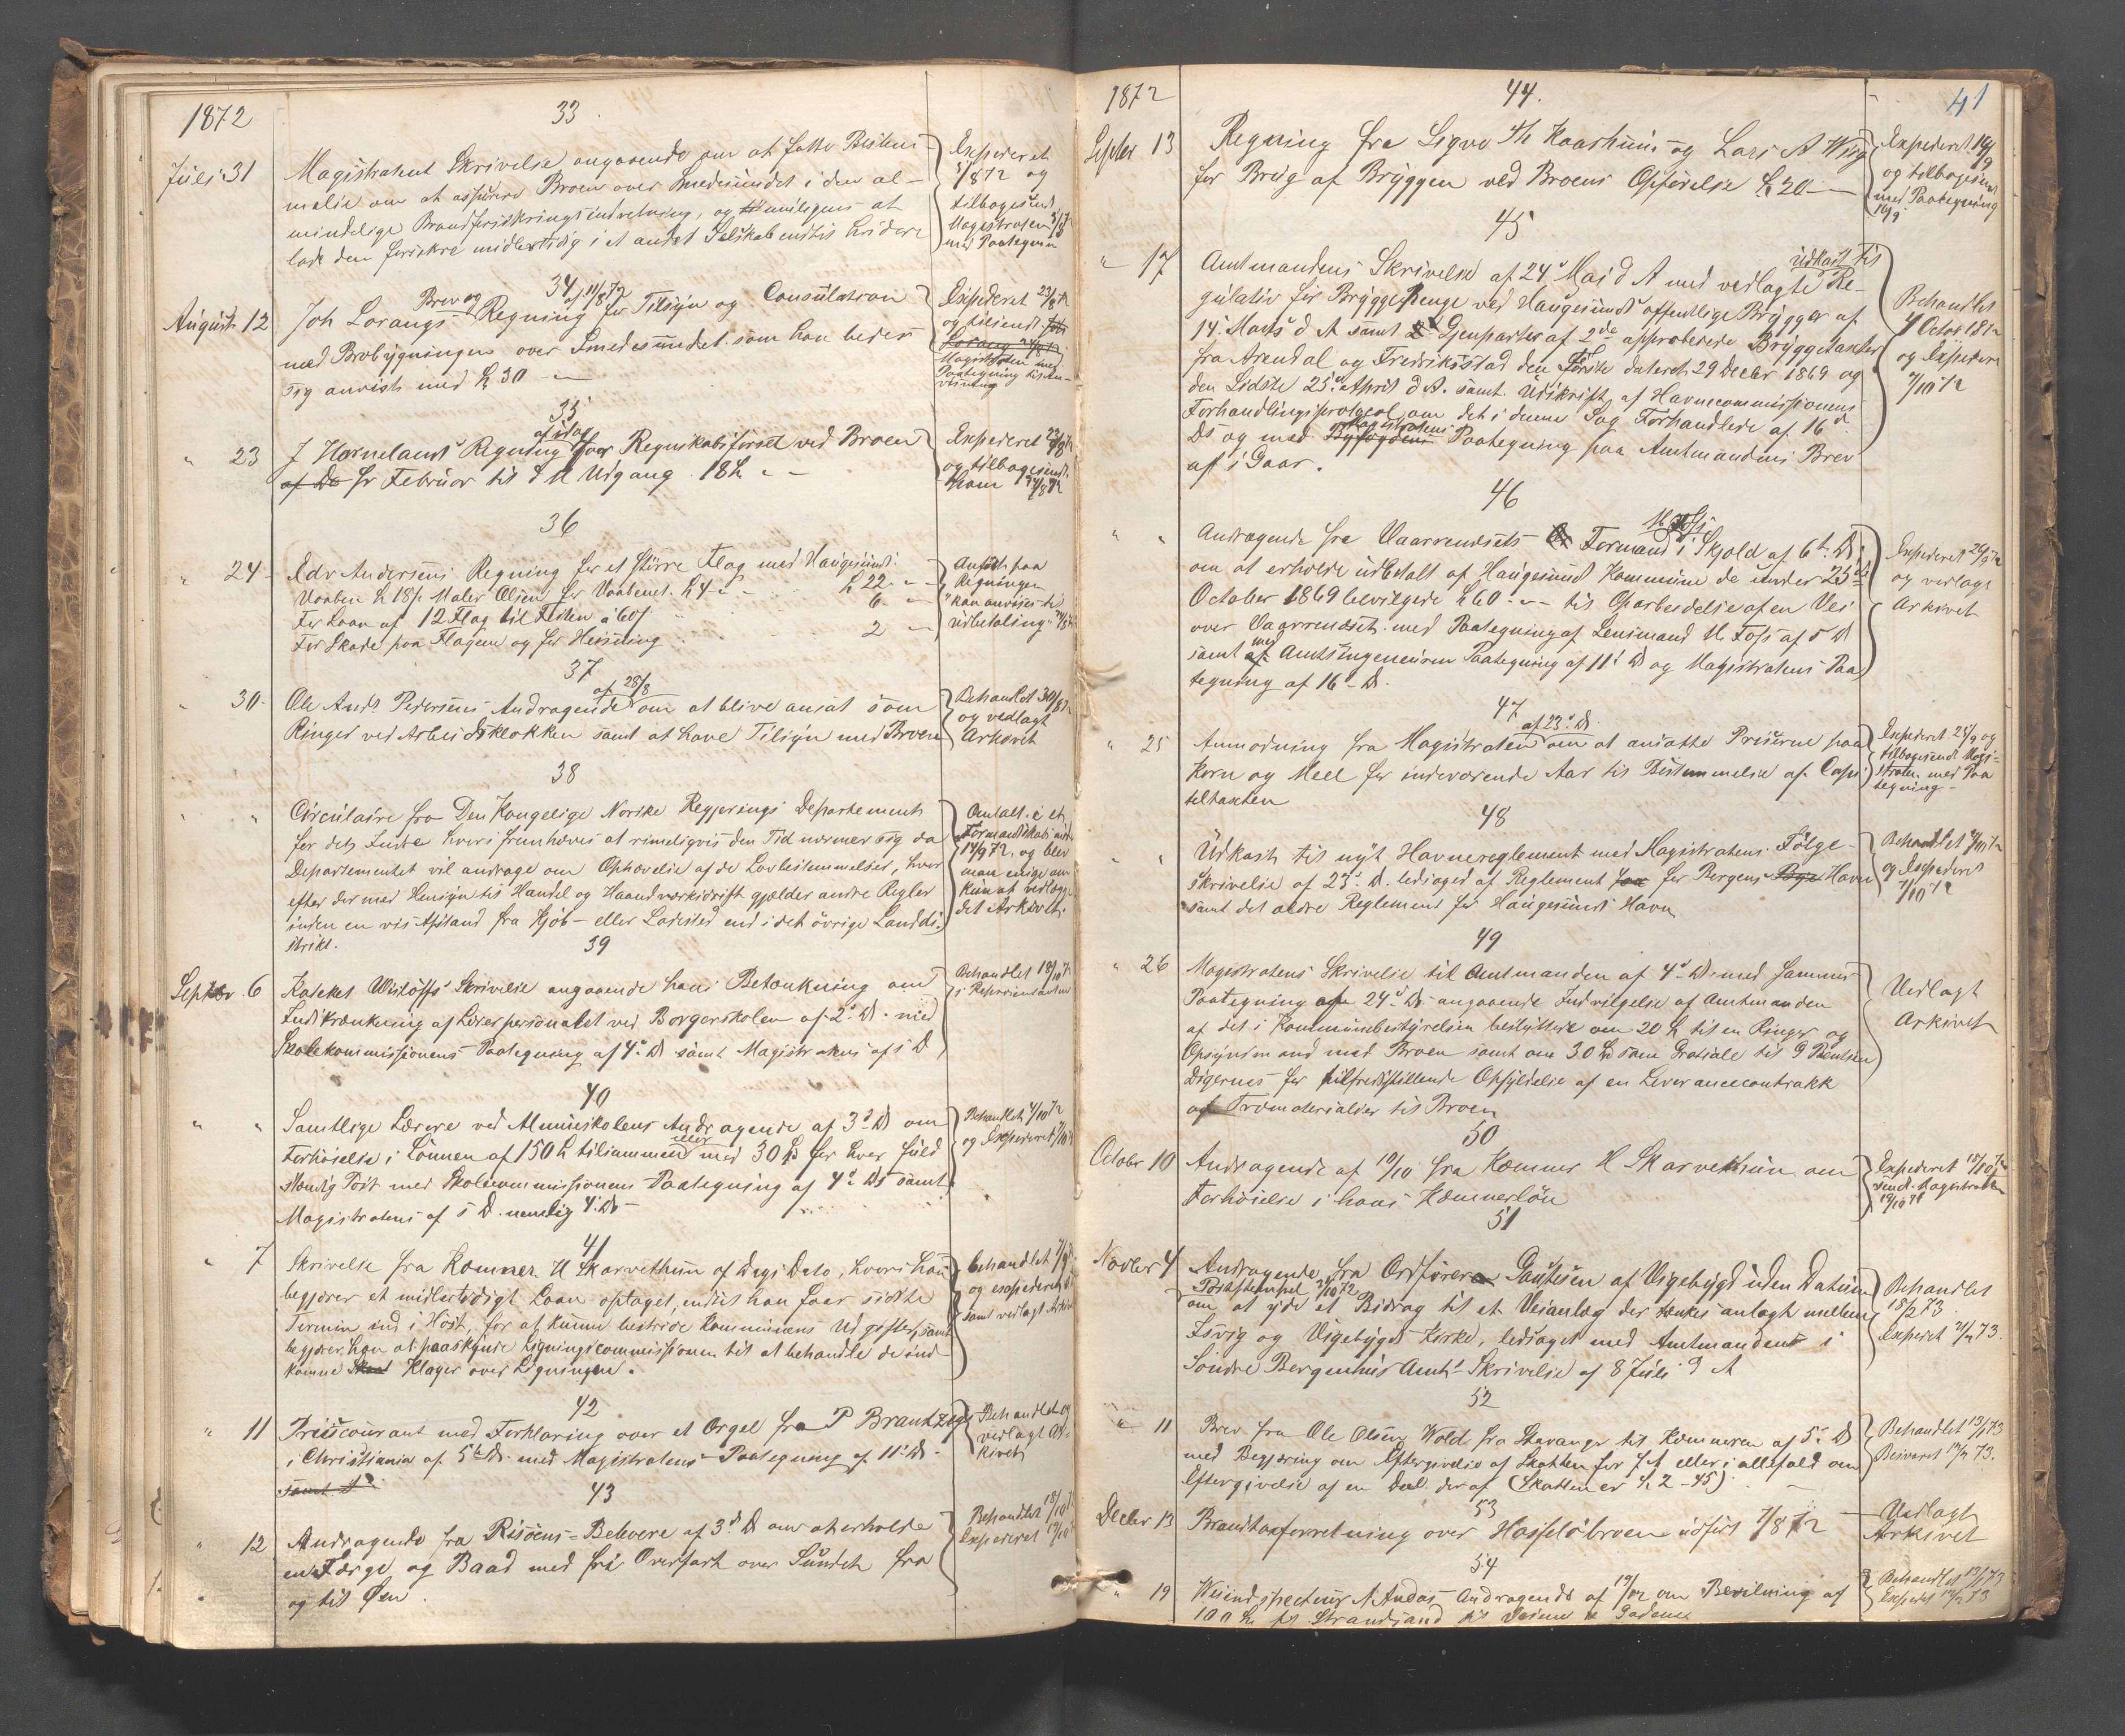 1872
33
Juli 31
Magistratens Skrivelse angaaende om at fatte Beslut-
malie om at assurere Broen over Smedesundet i den al-
mindelige Brandforsikringsindretning, og muligens at
lade den forsikre midlertidig i et andet Selskab indtil
Expederet
1/8 72 og
tilbagesendt
Magistraten
med Paategning
34
August 12
Joh Lorangs Brev og Regning af 11/8 72 for Tilsyn og Consulation
med Brobygningen over Smedesundet som han beder
sig anvist med 30
Expederet 23/8 72
og tilsendt
Magistraten med
Paategning til An-
visning
35
" 23
J Hornelands Regning af idag for Regnskabsførsel ved Broen
af Do fr Februar til d M Udgang. 18
Expederet
og tilbagesendt
ham
36
" 24
Edv Andersens Regning for et større Flag med Haugesunds
Vaaben 18, Maler Olsen for Vaabenet. 4 22. "
For Laan af 12 Flag til Festen à 60 6 "
For Skade paa Flagene og for Heisning 2 "
Anført paa
Regningen
"kan anvises til
udbetaling
37
" 30
Ole Ands Pedersens Andragende af 28/8 om at blive ansat som
Ringer ved Arbeidsklokken samt at have Tilsyn med Broen
Behandlet 30/8 72
og vedlagt
Arkivet
38
" "
Circulaire fra Den Kongelige Norske Regjerings Departement
for det Indre hvori fremhæves at rimeligvis den Tid nærmer sig da
Departementet vil andrage om Ophævelse af de Lovbestemmelser, hvor
efter der med Hensyn til Handel og Haandværksdrift gjælder andre Regler
inden en vis Afstand fra Kjøb- eller Ladested end i det øvrige Landdi-
strikt.
Omtalt i et
Formandskabsmøde
14/9 72, og blev
man enige om
kun at vedlægge
det Arkivet.
39
Septbr 6
Kateket Wisløffs Skrivelse angaaende hans Betænkning om
Indskrænkning af Lærerpersonalet ved Borgerskolen af 2. D. med
Skolekommissionens Paategning af 4. D samt Magistratens af 5 D
Behandlet 18/10 72
i Repræsentantm
40
" "
Samtlige Lærere ved Almueskolens Andragende af 3d D om
Forhøielse i Lønnen af 150 tilsammen eller med 30 for hver fuld-
stændig Post med Skolecommissionens Paategning af 4d Ds samt
Magistratens af 5 D. nemlig 4. D
Behandlet 4/10 72
og Expederet
41
" 7
Skrivelse fra Kæmner H Skarvethum af Dags Dato, hvori han
begjærer et midlertidigt Laan optaget, indtil han faar sidste
Termin ind i Høst, for at kunne bestride Kommunens Udgifter, samt
begjærer han at paaskynde Ligningscommissionen til at behandle de ind-
komne Klager over Ligningen.
behandlet
og expederet
samt vedlagt Arkivet
42
" 11
Priiscourant med Forklaring over et Orgel fra P Brantzeg
i Christiania af 5te D. med Magistratens Paategning af 11. D.
samt
Behandlet og
vedlagt Ar-
kivet
43
" 12
Andragende fra Risøens Beboere af 3d D om at erholde
en Færge og Baad med fri Overfart over Sundet fra
og til Øen.
Behandlet 18/10 72
Expederet
1872
44.
41
Septbr 13
Regning fra Sigvo Th Kaarhuus og Lars A Wiig
for Brug af Bryggen ved Broens Opførelse 20
Expederet
og tilbagesendt
med Paategning
16/9
45
" 17
Amtmandens Skrivelse af 24d Mai d A med vedlagte Udkast til Re-
gulativ for Bryggepenge ved Haugesunds offentlige Brygger af
14 Marts d A samt Gjenparter af 2de approberede Bryggetaxter
fra Arendal og Fredriksstad den Første dateret 29 Decbr 1869 og
den Sidste 25de April d A. samt Udskrift af Havnecommissionens
Forhandlingsprotocol om det i denne Sag Forhandlede af 16d
Ds og med Byfogdens Magistratens Paategning paa Amtmandens Brev
af i Gaar.
Behandlet
4 Octob 1872
og Expederet
7/10 72
46
" "
Andragende fra Vaarrendsets Formand i Skjold af 6te D.
om at erholde udbetalt af Haugesund Kommune de under 25de
October 1869 bevilgede 60 til Oparbeidelse af en Vei
over Vaarrendset med Paategning af Lensmand H. Foss af 5 D
samt af med Amtsingeneuren Paategning af 11. D og Magistratens Paa
tegning af 16 D.
Expederet
og vedlagt
Arkivet
47
" 25
Anmodning fra Magistraten af 23d D. om at ansatte Priserne paa
Korn og Meel for indeværende Aar til Bestemmelse af Capi-
teltaxten
Expederet 25/9 og
tilbagesendt Magi-
straten med Paa
tegning
48
" "
Udkast til nyt Havnereglement med Magistratens Følge-
skrivelse af 23d D. ledsaget af Reglement for Bergens Bys Havn
samt det ældre Reglement for Haugesunds Havn
Behandlet 4/10 72
og Expederet
7/10 72
49
" 26
Magistratens Skrivelse til Amtmanden af 4d D. med sammes
Paategning af 24d D. angaaende Indvilgelse af Amtmanden
af det i Kommunebestyrelsen besluttede om 20 til en Ringer og
Opsynsmand med Broen samt om 30 som Gratiale til G Bentsen
Digernes for tilfredsstillende Opfyldelse af en Leverancecontrakt
af Træmaterialier til Broen
Vedlagt
Arkivet
50
Octobr 10
Andragende af 10/10 fra Kæmner H Skarvethum om
Forhøielse i hans Kæmnerløn
Expederet 18/10 72
sendt Magistraten
51
Novbr 4
Andragende fra Ordfører Gautesen af Vigebygd uden Datum
Poststempel 2/10 72
om at yde et Bidrag til et Veianlæg der tænkes anlagt mellem
Isvig og Vigebygds Kirke, ledsaget med Amtmanden i
Søndre Bergenhus Amt Skrivelse af 8 Juli d A
Behandlet
18/2 73.
Experet 21/2 73.
52
" 11
Brev fra Ole Olsen Wold fra Stavanger til Kæmneren af 5. D
med Begjæring om Eftergivelse af Skatten for d A eller i allefald om
Eftergivelse af en Deel deraf (Skatten er 2 - 45)
Behandlet 13/1 73
Besvaret 73.
53
Decbr 13
Brandtaxforretning over Hasseløbroen udført 7/8 72
Vedlagt
Arkivet
54
" 19
Veiinspecteur N Andas Andragende af om Bevilgning af
100 til Strandsand til Veiene & Gaderne
Behandlet 13/1 73
Experet 73